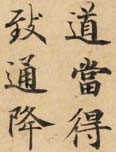 道當得
致通降